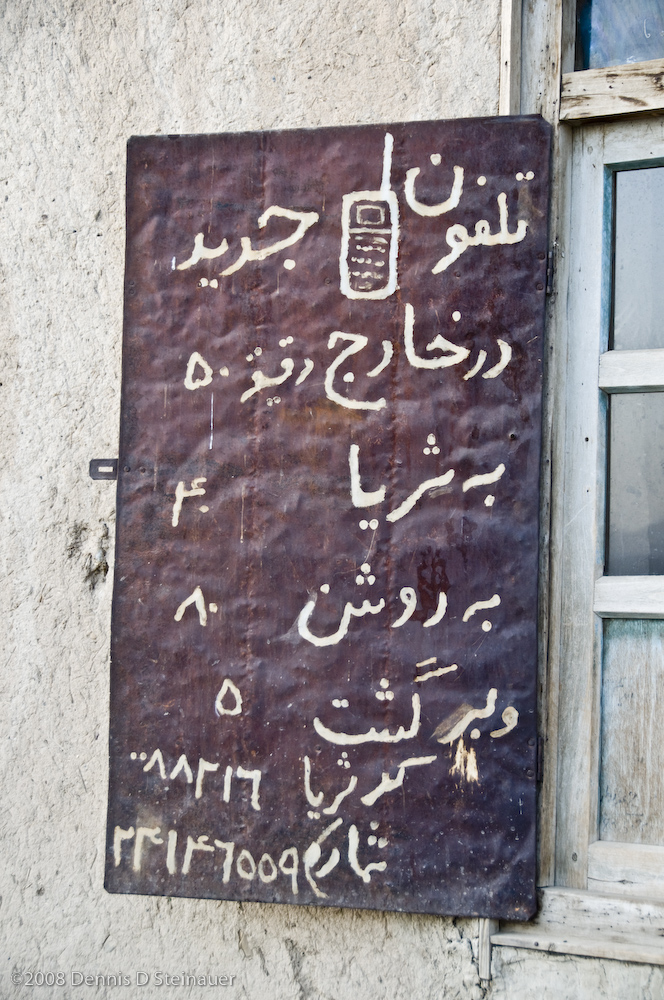 تلفون جدید
در خارج دقیقه ۵۰
به ثریا ۴۰
به روشن ۸۰
وبر گشت ۵
کد ثریا ۰۰۸۸۲۱۶
شماره
©2008 Dennis D Steinauer